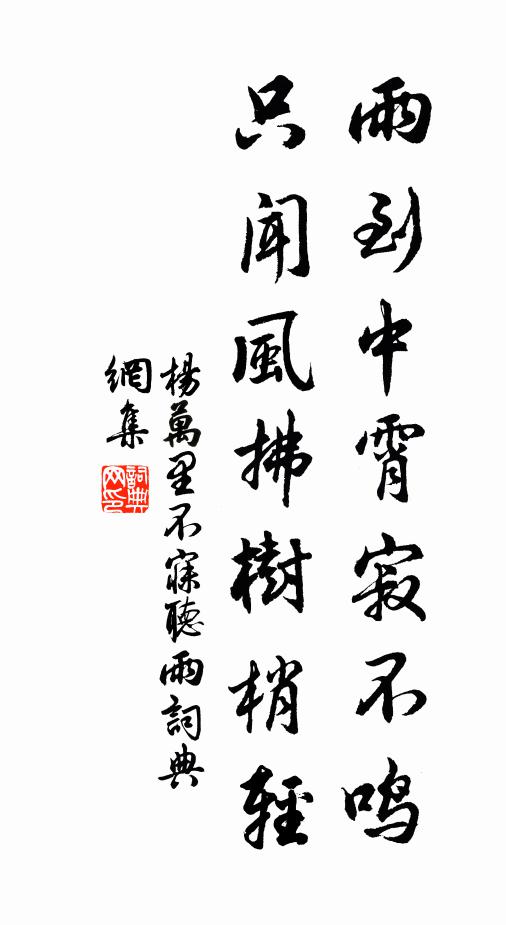 雨到中霄寂不鸣
只闻風拂樹梢輕
楊萬里不寐聽雨詞典
網集
詞典
网印